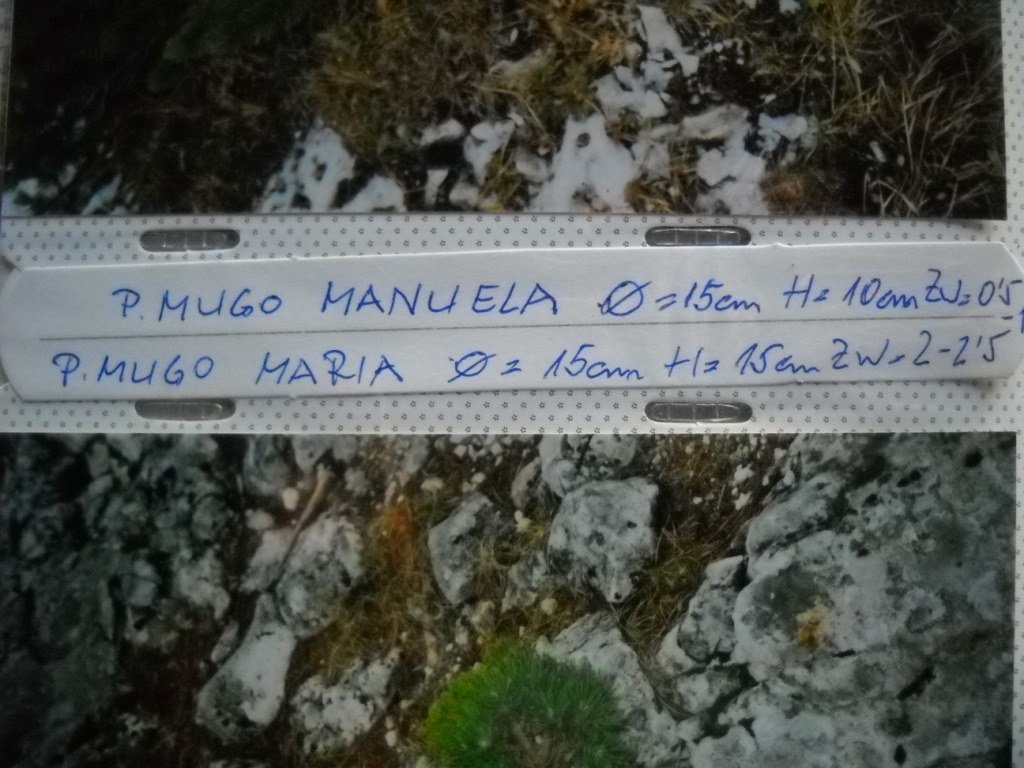 P. MUGO MANUELA Ø = 15cm H = 10cm ZW = 0'5 - 1
P. MUGO MARIA Ø = 15cm H = 15cm ZW = 2-2'5